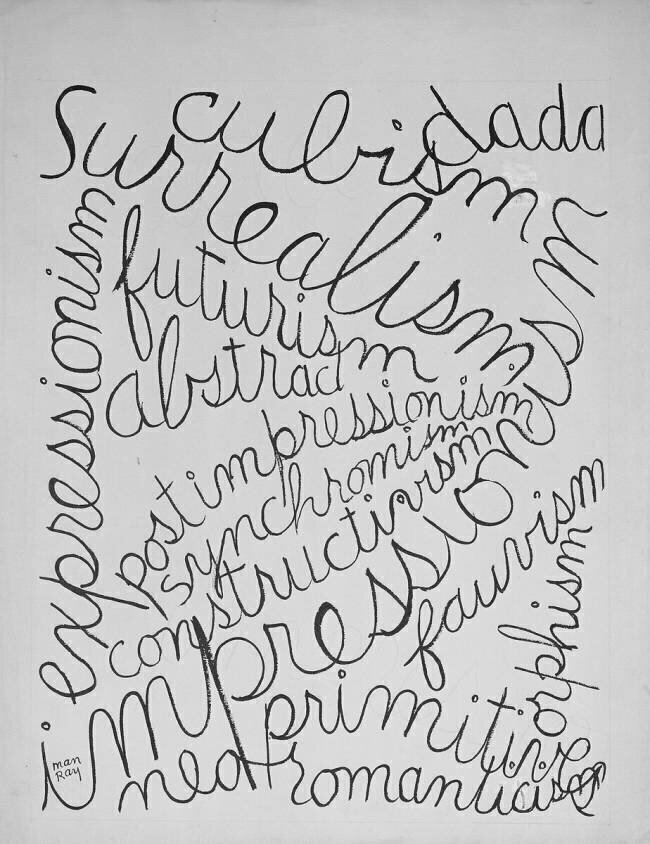 cubism
dada
surrealism
expressionism
futurism
abstract
postimpressionism
synchromism
constructivism
impressionism
fauvism
orphism
primitive
neoromanticism
man
Ray